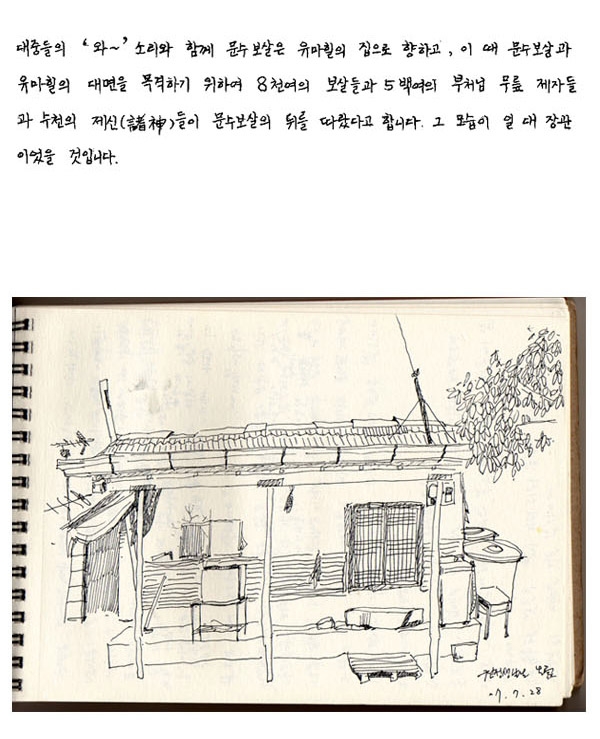 대중들의 '와~' 소리와 함께 문수보살은 유마힐의 집으로 향하고, 이 때 문수보살과
유마힐의 대면을 목격하기 위하여 8천여의 보살들과 5백여의 부처님 무릎 제자들
과 수천의 제신(諸神)들이 문수보살의 뒤를 따랐다고 합니다. 그 모습이 일 대 장관
이었을 것입니다.
7. 28